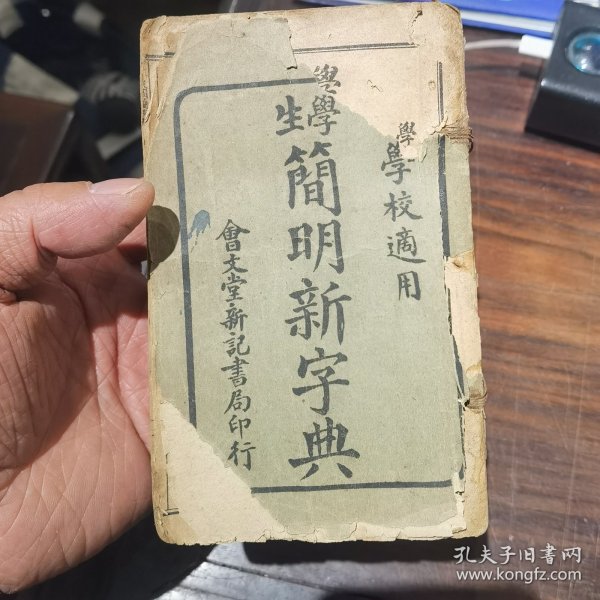 學校適用
學生簡明新字典
會文堂新記書局印行
孔夫子旧书网
www.kongfz.com